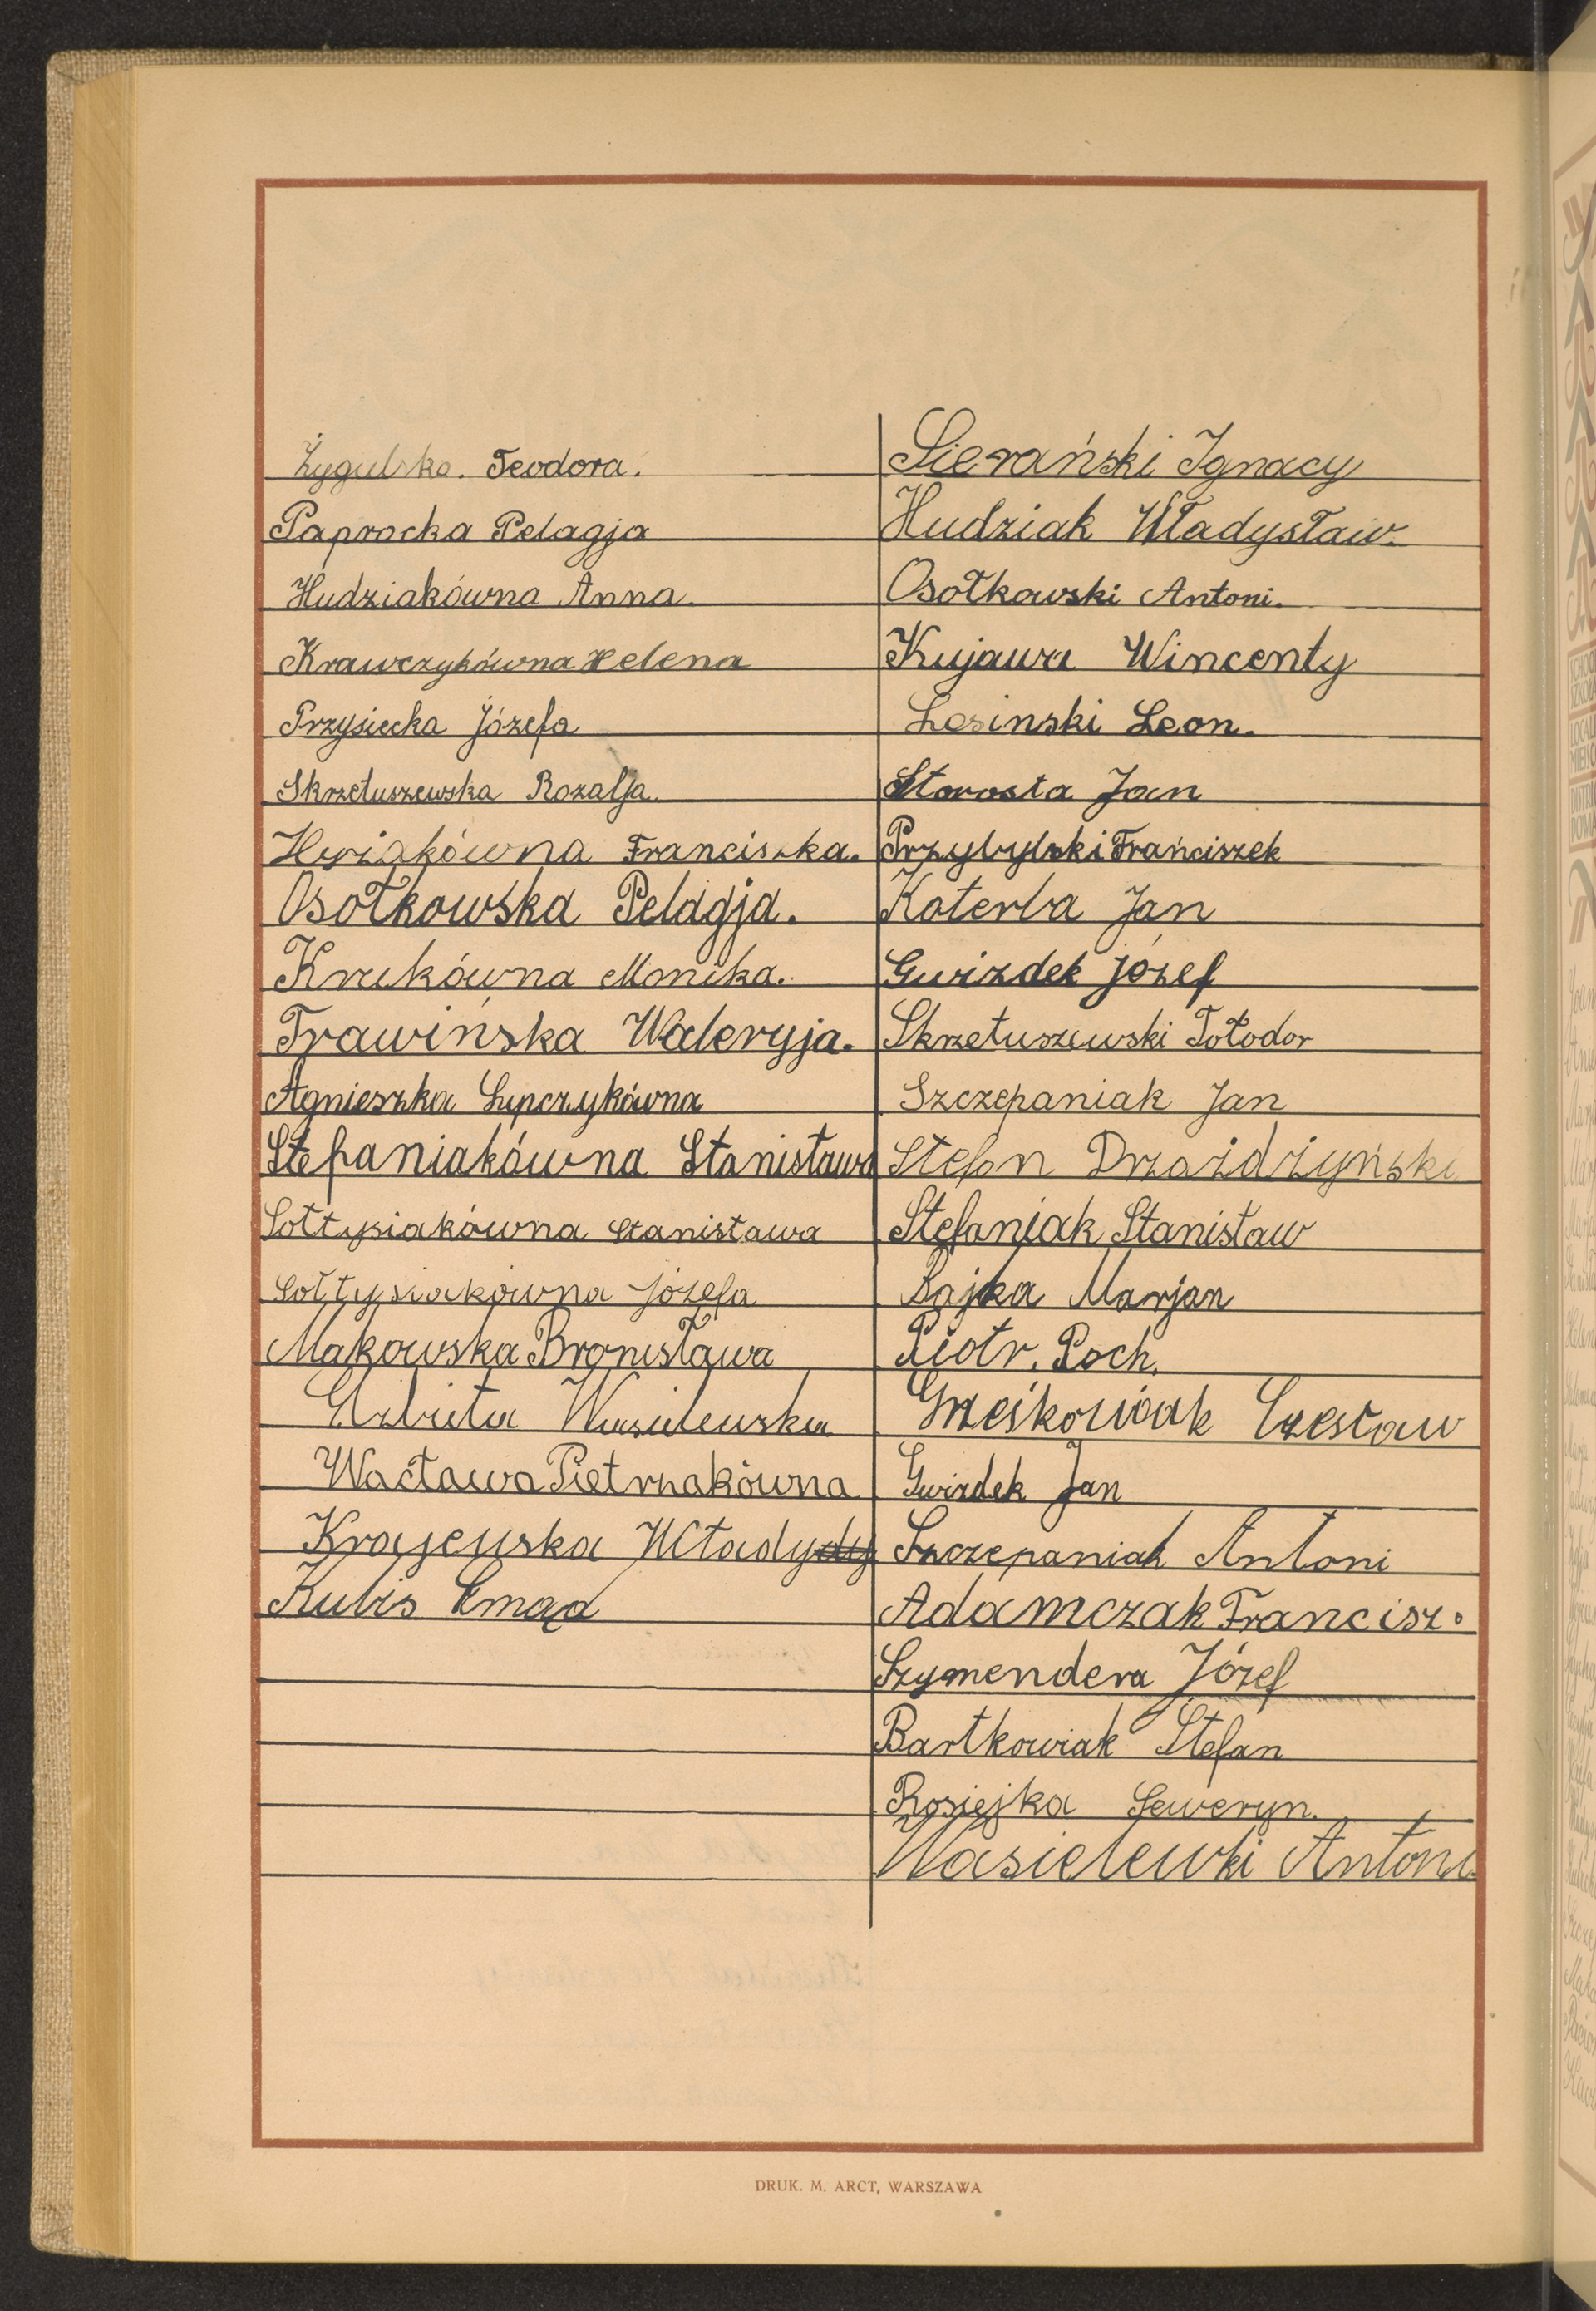 Żygulska. Teodora.
Paprocka Pelagja
Hudziakówna Anna
Krawczykówna Helena
Przysiecka Józefa
Skrzetuszewska Rozalja.
Franciszka.
Osołkowska Pelagja.
Krukówna Monika.
Trawińska Waleryja.
Agnieszka Lupczykówna
Stefaniakówna Stanisława
Sołtysiakówna Stanisława
Sołtysiakówna Józefa
Makowska Bronisława
Elzbieta Wasielewska
Wacława Pietrzakówna
Krajewska Władydy
Kubis
Sierański Ignacy
Hudziak Władysław.
Osołkowski Antoni.
Kujawa Wincenty
Losinski Leon.
Starosta Jan
Przybylski Franciszek
Koterba Jan
Gwizdek Józef
Skrzetuszewski Tołodor
Szczepaniak Jan
Stefan Drzażdżyński
Stefaniak Stanisław
Bajka Marjan
Piotr. Poch.
Grześkowiak Czesław
Gwizdek Jan
Szczepaniak Antoni
Adamczak Francisz.
Szymendera Józef
Bartkowiak Stefan
Rosiejka Seweryn.
Wasielewki Antoni
DRUK. M. ARCT, WARSZAWA